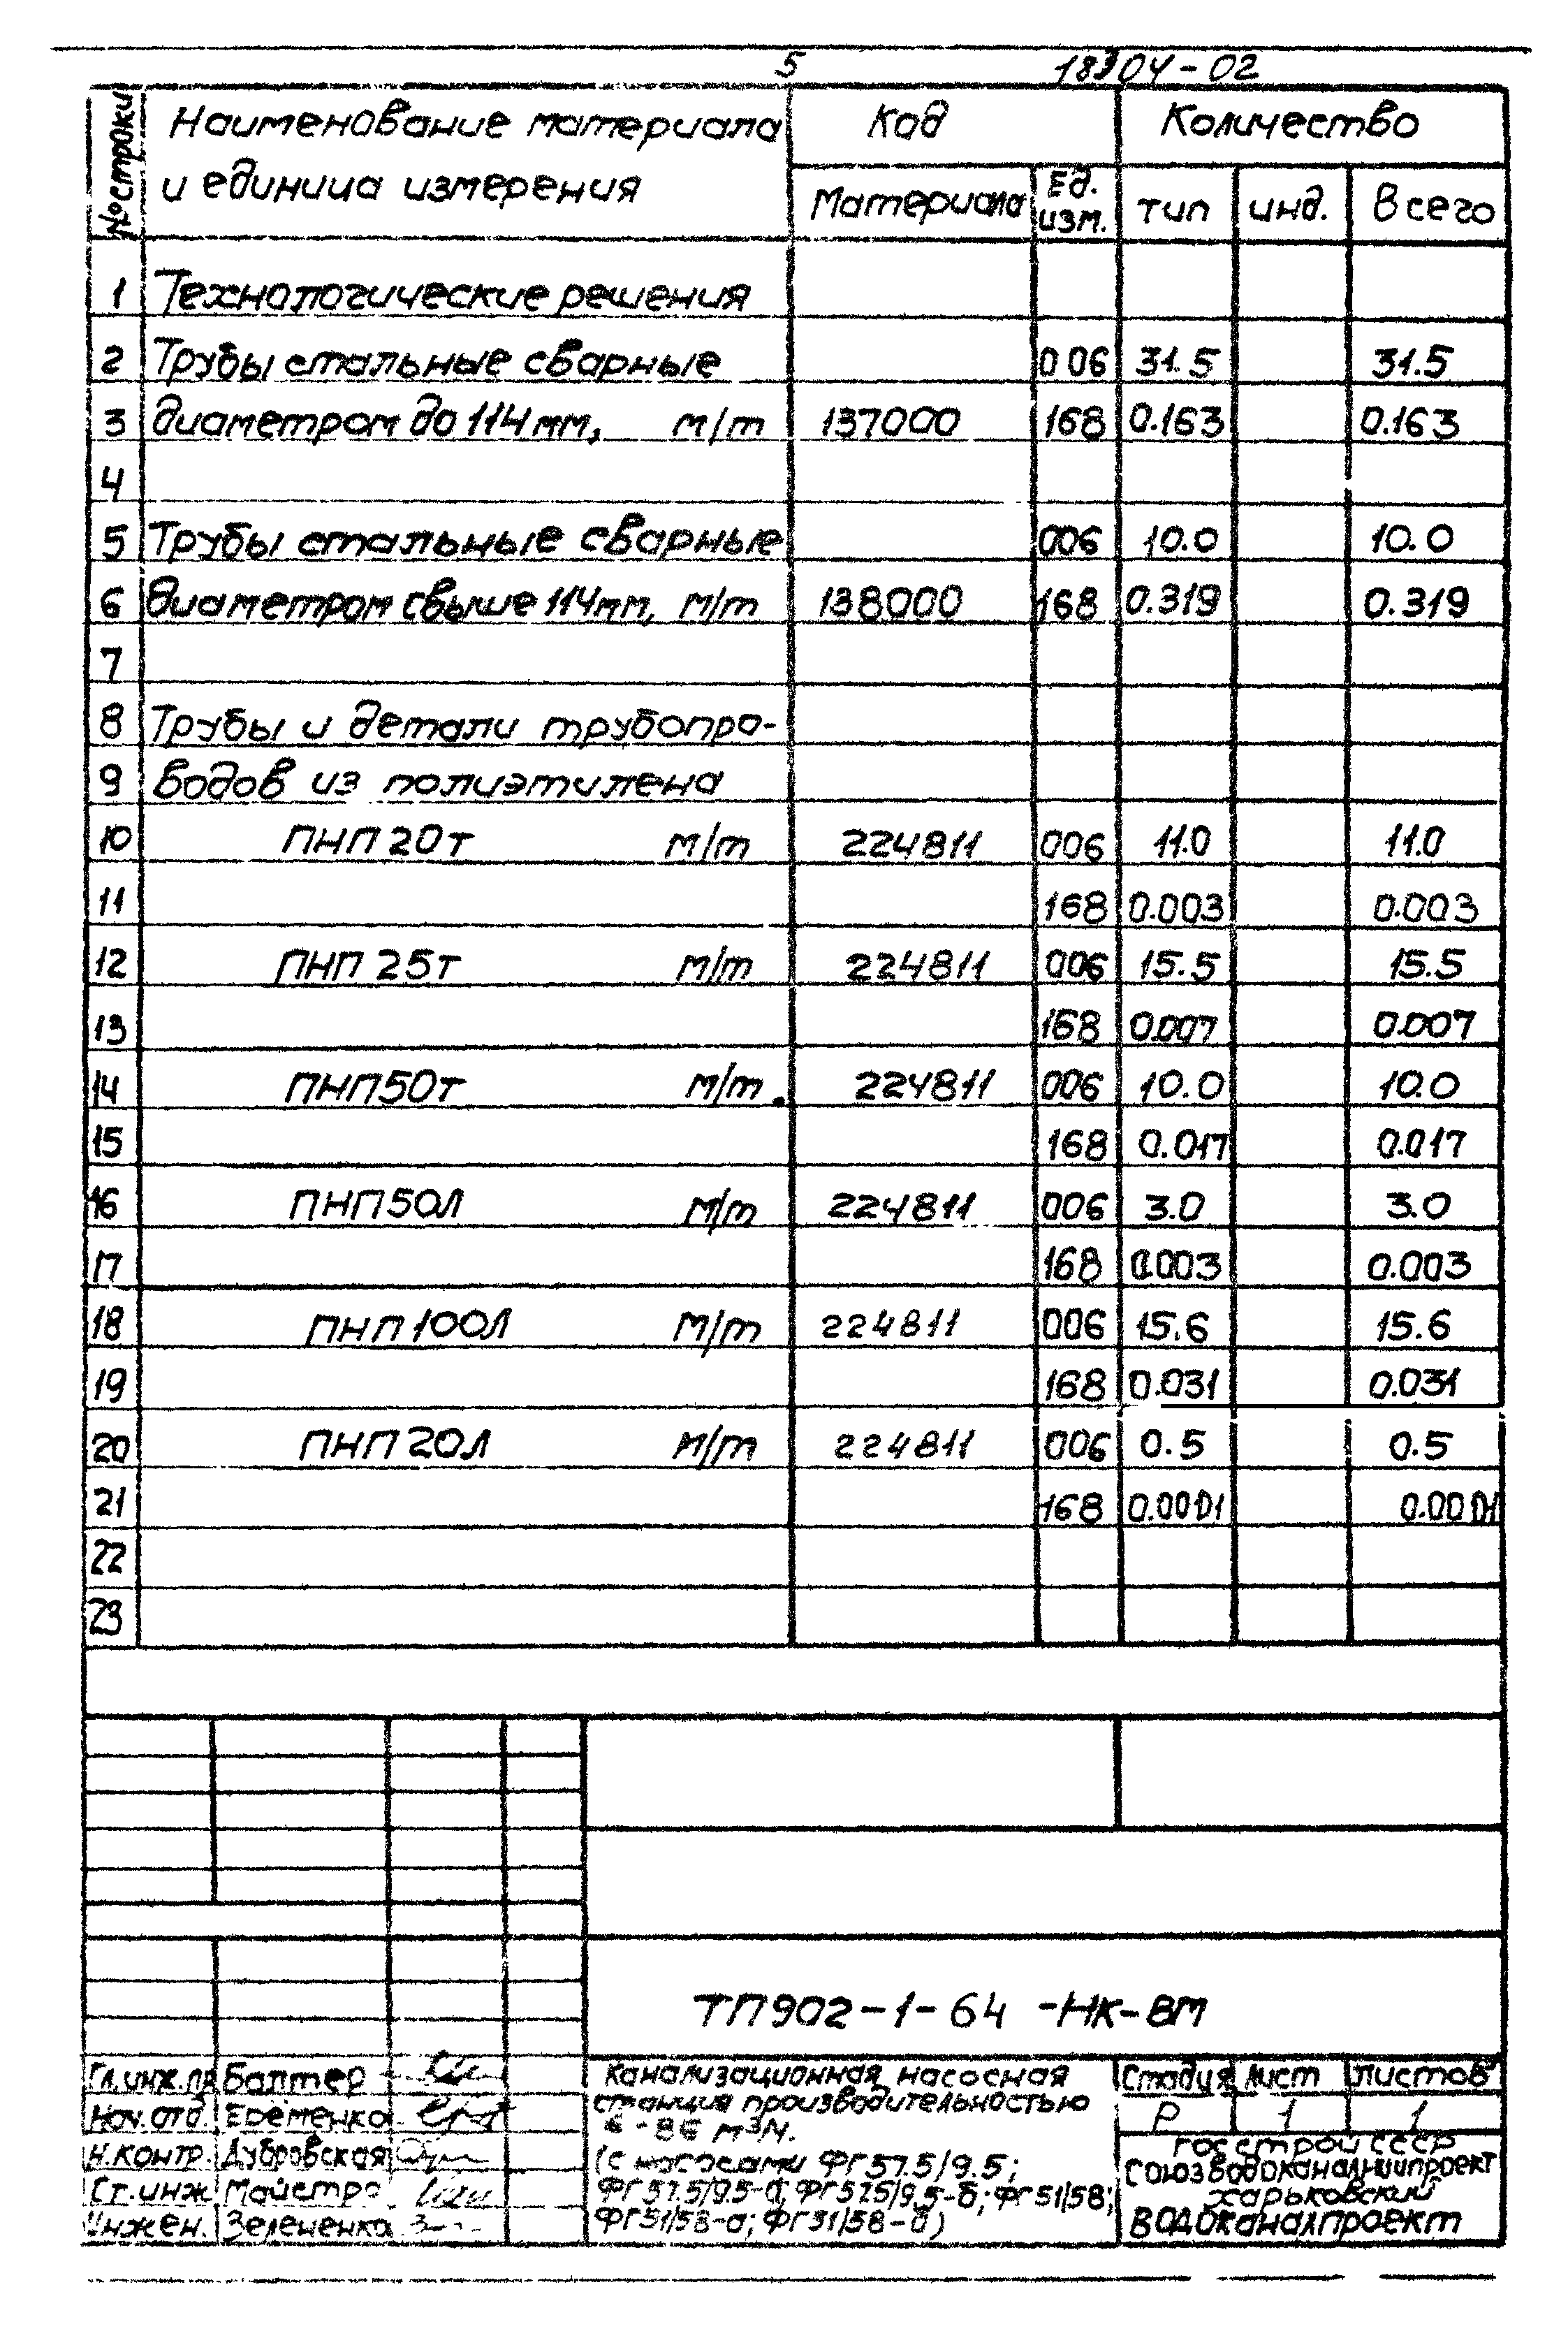 5 18304-02
№ строки Наименование материала и единица измерения Код Количество
Материала Ед. изм. тип инд. Всего
1 Технологические решения
2 Трубы стальные сварные 006 31.5 31.5
3 диаметром до 114мм, м/т 137000 168 0.163 0.163
4
5 Трубы стальные сварные 006 10.0 10.0
6 диаметром свыше 114мм, м/т 138000 168 0.319 0.319
7
8 Трубы и детали трубопро-
9 водов из полиэтилена
10 ПНП 20т м/т 224811 006 11.0 11.0
11 168 0.003 0.003
12 ПНП 25т м/т 224811 006 15.5 15.5
13 168 0.007 0.007
14 ПНП50т м/т. 224811 006 10.0 10.0
15 168 0.017 0.017
16 ПНП50л м/т 224811 006 3.0 3.0
17 168 0.003 0.003
18 ПНП100л м/т 224811 006 15.6 15.6
19 168 0.031 0.031
20 ПНП 20л м/т 224811 006 0.5 0.5
21 168 0.0001 0.0001
22
23
ТП902-1-64 -НК-ВМ
Гл.инж.пр Балтер
Нач.отд. Еременко
Н.контр. Дубровская
Ст.инж Майстро
Инжен. Зелененко
Канализационная насосная
станция производительностью
6-86 м³/ч.
(с насосами ФГ57.5/9.5;
ФГ57.5/9.5-а; ФГ57.5/9.5-б; ФГ51/58;
ФГ51/58-а; ФГ51/58-б)
Стадия Лист Листов
Р 1 1
Госстрой СССР
Союзводоканалниипроект
Харьковский
Водоканалпроект